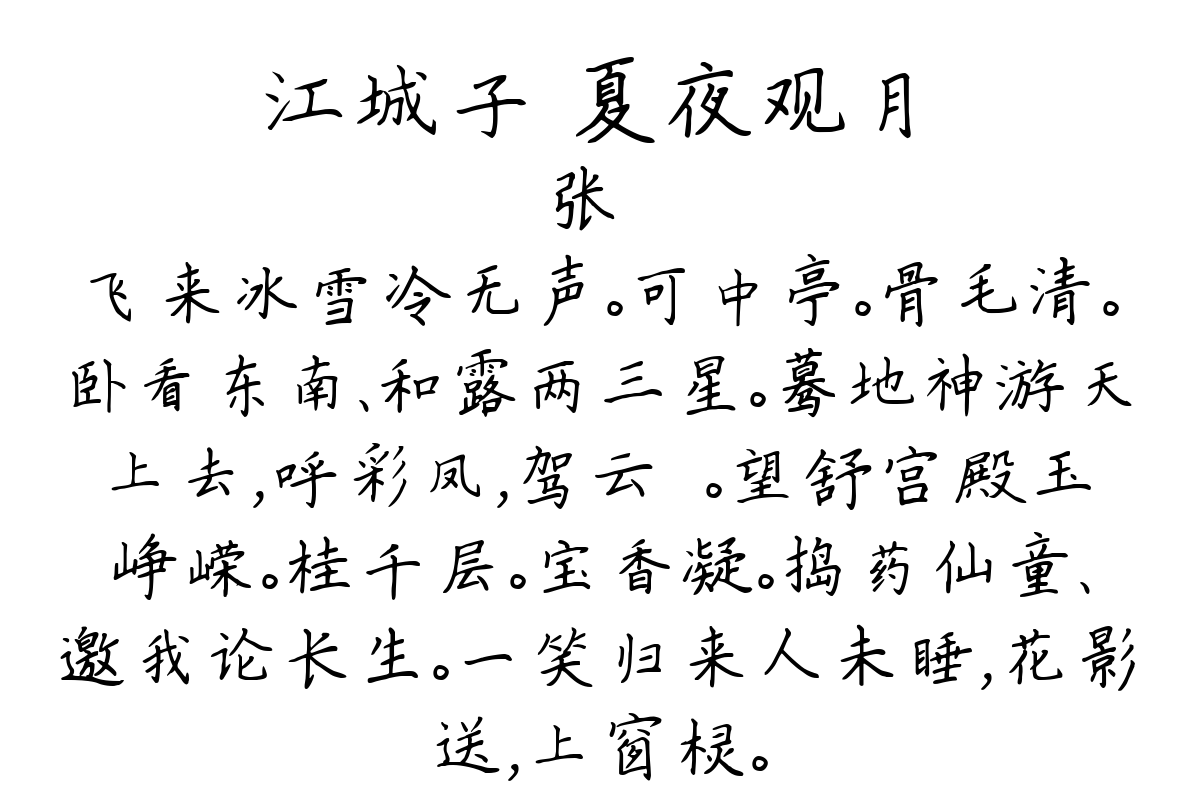 江城子 夏夜观月
张
飞来冰雪冷无声。可中亭。骨毛清。
卧看东南、和露两三星。蓦地神游天
上去,呼彩凤,驾云 。望舒宫殿玉
峥嵘。桂千层。宝香凝。捣药仙童、
邀我论长生。一笑归来人未睡,花影
送,上窗棂。